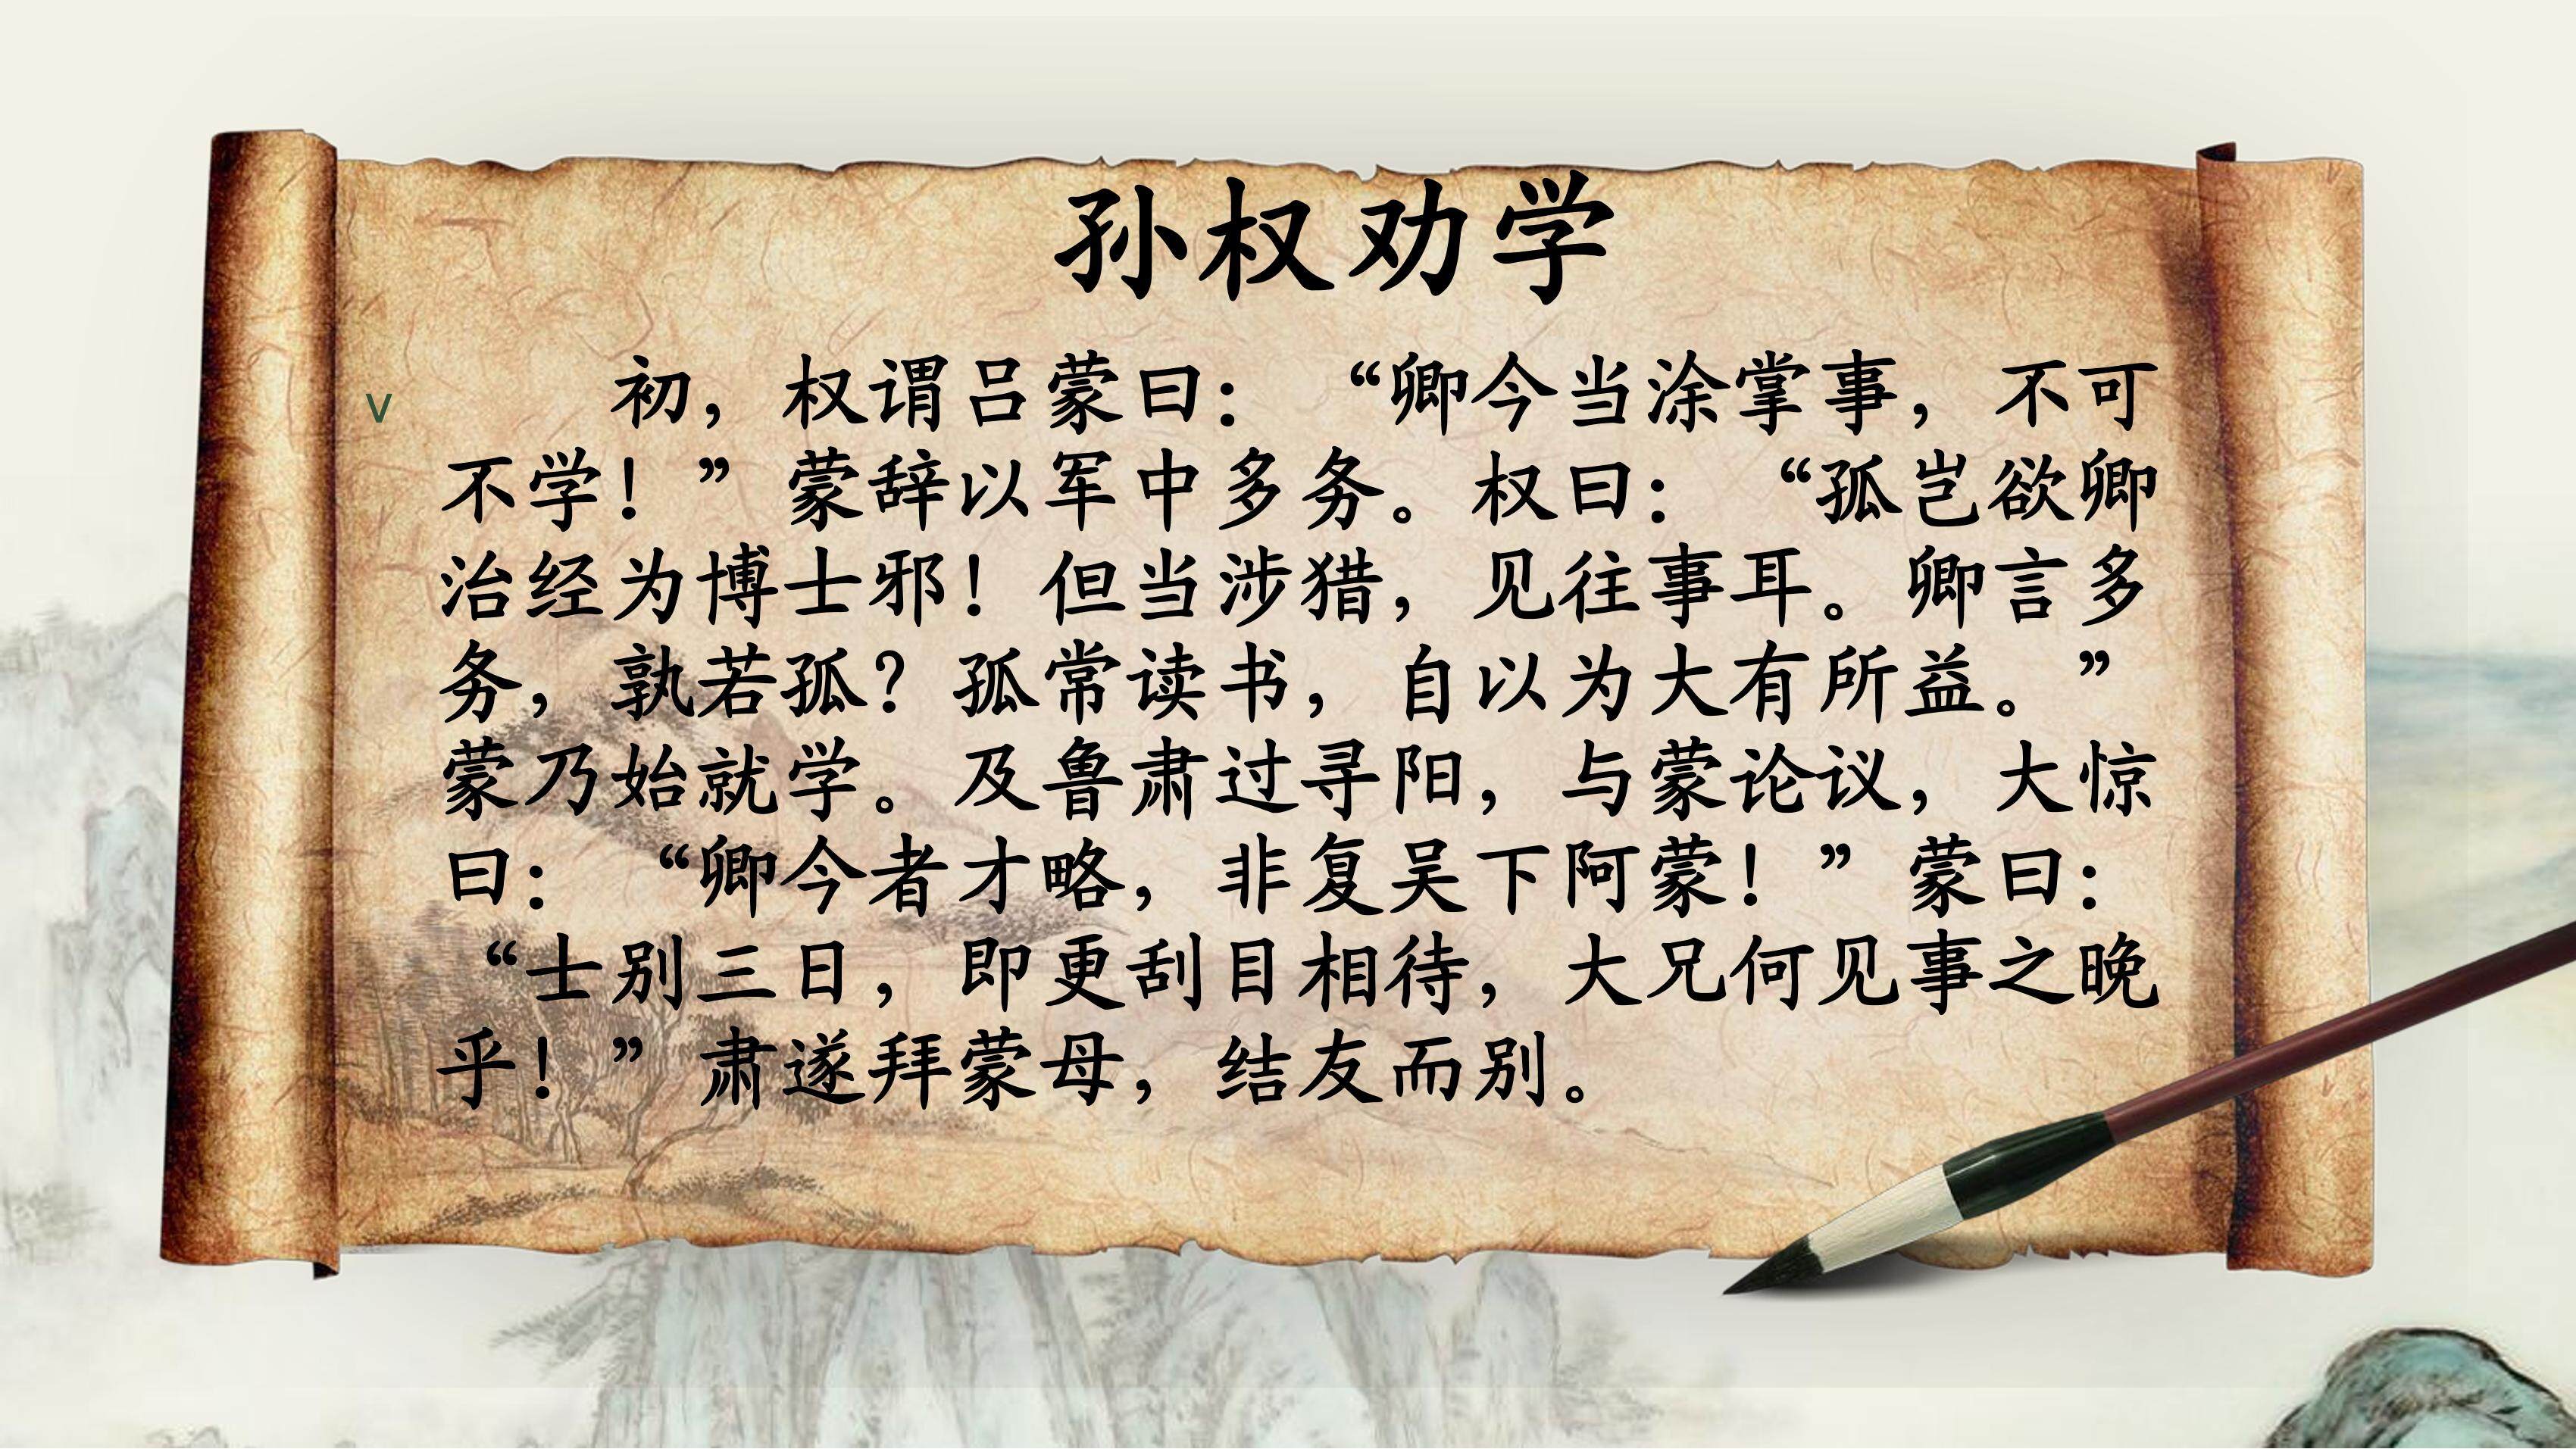 孙权劝学
v 初，权谓吕蒙曰：“卿今当涂掌事，不可
不学！”蒙辞以军中多务。权曰：“孤岂欲卿
治经为博士邪！但当涉猎，见往事耳。卿言多
务，孰若孤？孤常读书，自以为大有所益。”
蒙乃始就学。及鲁肃过寻阳，与蒙论议，大惊
曰：“卿今者才略，非复吴下阿蒙！”蒙曰：
“士别三日，即更刮目相待，大兄何见事之晚
乎！”肃遂拜蒙母，结友而别。